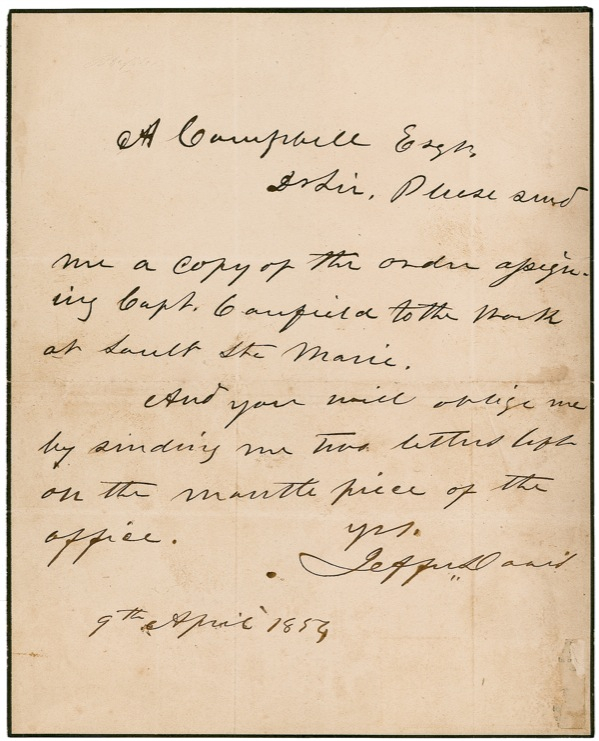 A Campbell Esqr.
Dr Sir, Please send
me a copy of the order assign-
ing Capt. Canfield to the work
at Sault Ste Marie.
And you will oblige me
by sending me two letters left
on the mantle piece of the
office. yrs.
Jeffn. Davis
9th April 1854